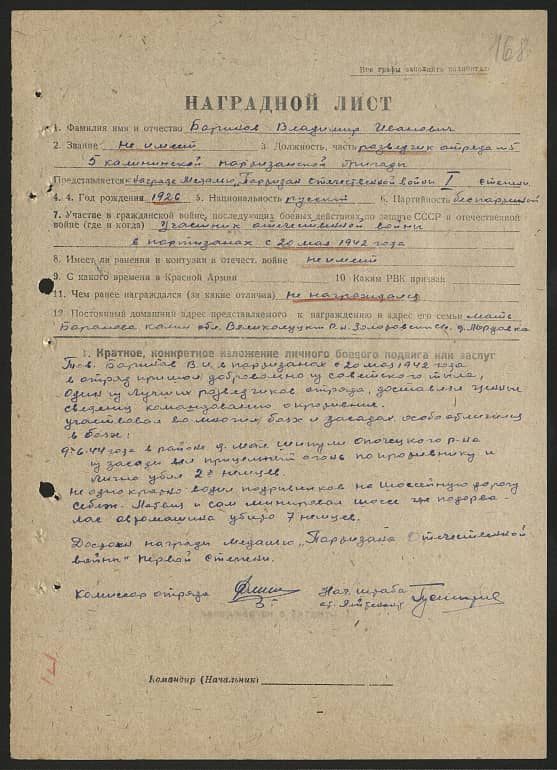 168
Все графы заполнять полностью
НАГРАДНОЙ ЛИСТ
1. Фамилия имя и отчество Баринов Владимир Иванович
2. Звание не имеет 3 Должность, часть разведчик отряда №5
5 калининской партизанской бригады
Представляется к награде Медалью „Партизан отечественной войны I степени
4. 4. Год рождения 1926 5. Национальность русский 6. Партийность беспартийный
7. Участие в гражданской войне, последующих боевых действиях по защите СССР и отечественной
войне (где и когда) Участник отечественной войны
в партизанах с 20 мая 1942 года
8. Имеет ли ранения и контузии в отечест. войне не имеет
9. С какого времени в Красной Армии 10 Каким РВК призван
11. Чем ранее награждался (за какие отличия) не награждался
12. Постоянный домашний адрес представляемого к награждению и адрес его семьи мать
Баринова калин обл. Великолукский р-н
1. Краткое, конкретное изложение личного боевого подвига или заслуг
Тов. Баринов В.И. в партизанах с 20 мая 1942 года
в отряд пришел добровольно из советского тыла,
Один из лучших разведчиков отряда, доставлял ценные
сведения командованию о противнике.
участвовал во многих боях и засадах особо отличился
в боях:
9-6-44 года в районе д. Опочецкого р-на
из засады вел прицельный огонь по противнику и
лично убил 2х немцев.
Неоднократно водил подрывников на шоссейную дорогу
Себеж. и сам минировал шоссе где подорва-
лась автомашина убито 7 немцев.
Достоин награды медалью „Партизан Отечественной
войны" первой степени.
Комиссар отряда Нач. штаба
ст. лейтенант
Командир (Начальник)